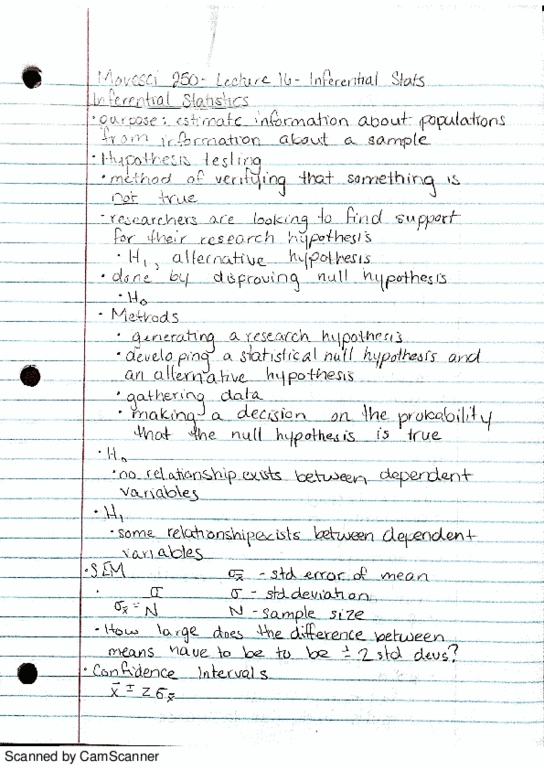 Movesci 250- Lecture 16- Inferential Stats
Inferential Statistics
• purpose: estimate information about populations
from information about a sample
• Hypothesis testing
• method of verifying that something is
not true
- researchers are looking to find support
for their research hypothesis
• H₁, alternative hypothesis
• done by disproving null hypothesis
• H₀
• Methods
• generating a research hypothesis
• developing a statistical null hypothesis and
an alternative hypothesis
• gathering data
• making a decision on the probability
that the null hypothesis is true
• H₀
• no relationship exists between dependent
variables
• H₁
• some relationship exists between dependent
variables
• SEM σx̄ - std error of mean
• σ σ - std deviation
σx̄ = N N - sample size
• How large does the difference between
means have to be to be ± 2 std devs?
• Confidence Intervals
x̄ ± zσx̄
Scanned by CamScanner